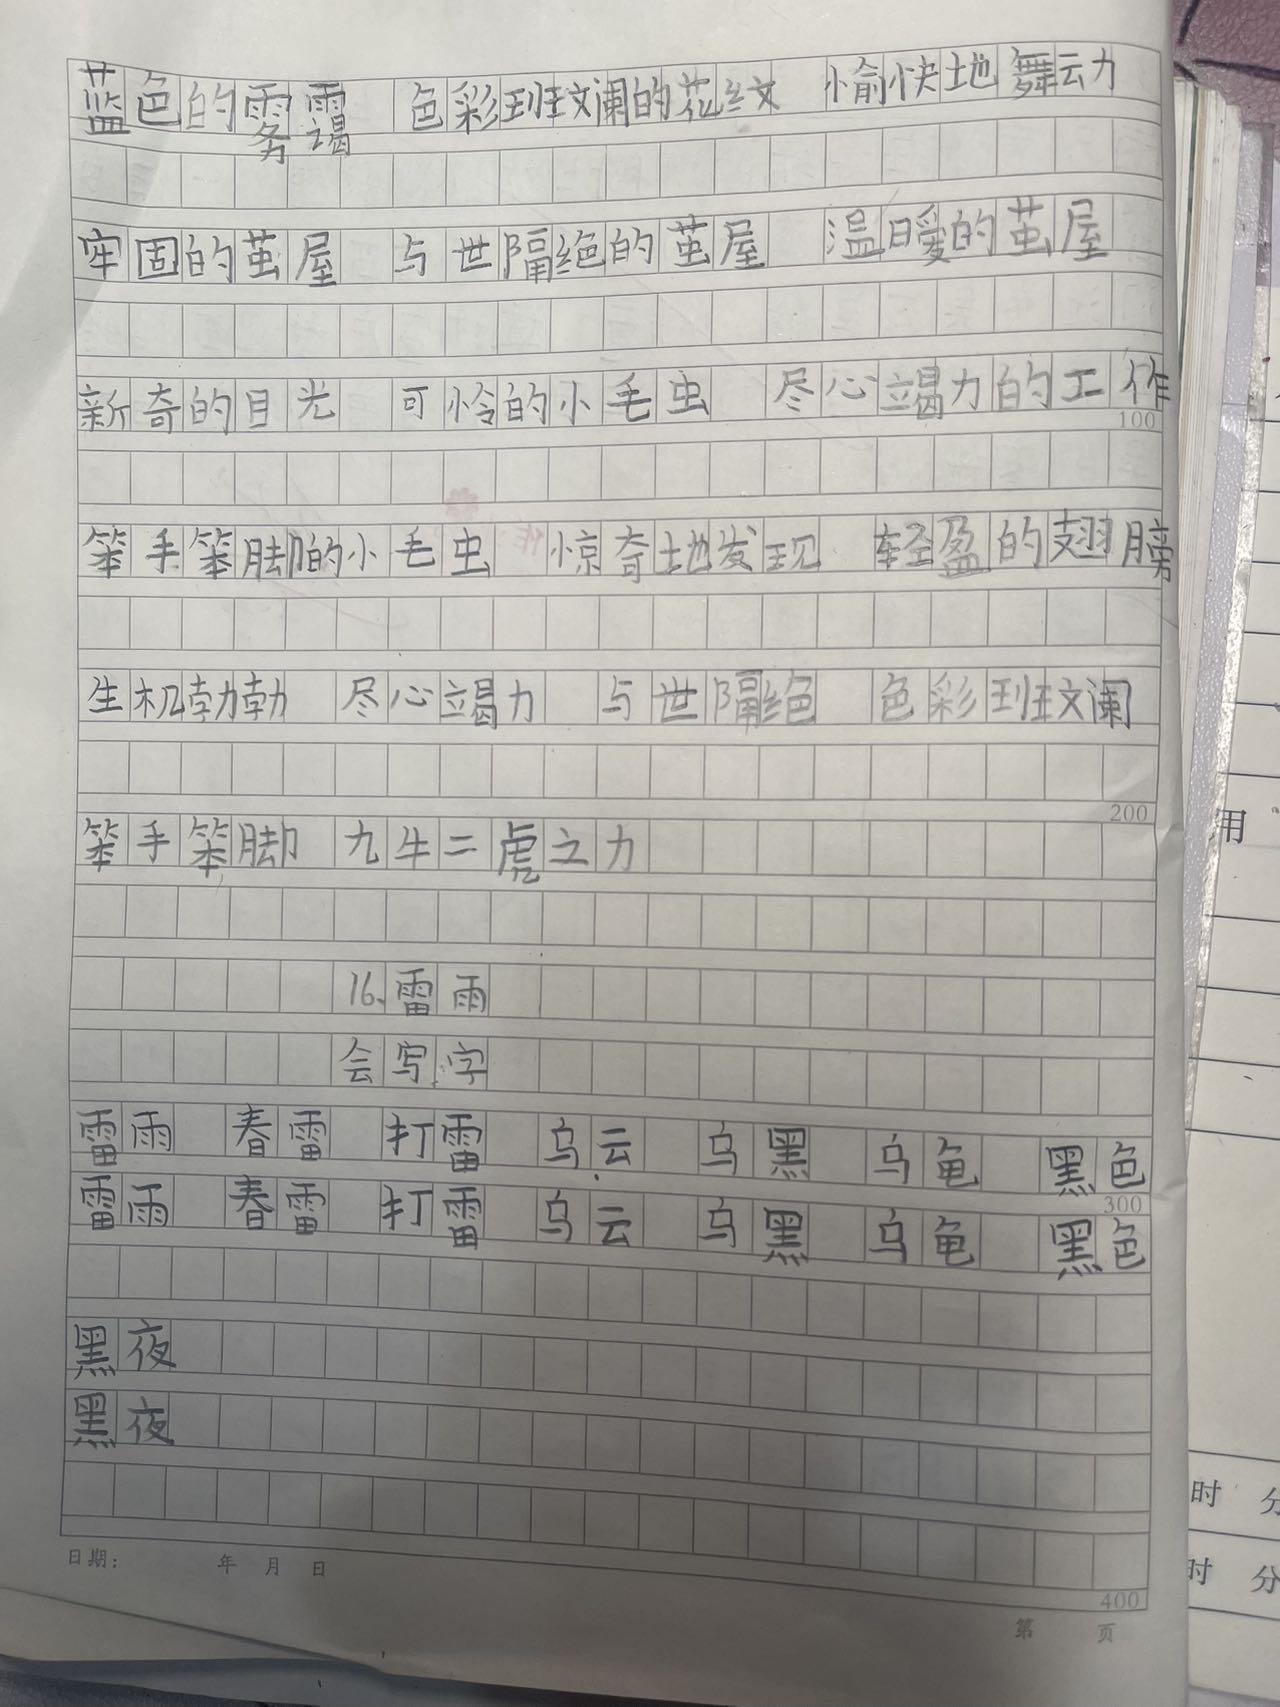 蓝色的雾霭 色彩斑斓的花纹 愉快地舞动
牢固的茧屋 与世隔绝的茧屋 温暖的茧屋
新奇的目光 可怜的小毛虫 尽心竭力的工作
100
笨手笨脚的小毛虫 惊奇地发现 轻盈的翅膀
生机勃勃 尽心竭力 与世隔绝 色彩斑斓
200
笨手笨脚 九牛二虎之力
16.雷雨
会写字
雷雨 春雷 打雷 乌云 乌黑 乌龟 黑色
300
雷雨 春雷 打雷 乌云 乌黑 乌龟 黑色
黑夜
黑夜
日期: 年 月 日
400
第 页
用
时 分
时 分